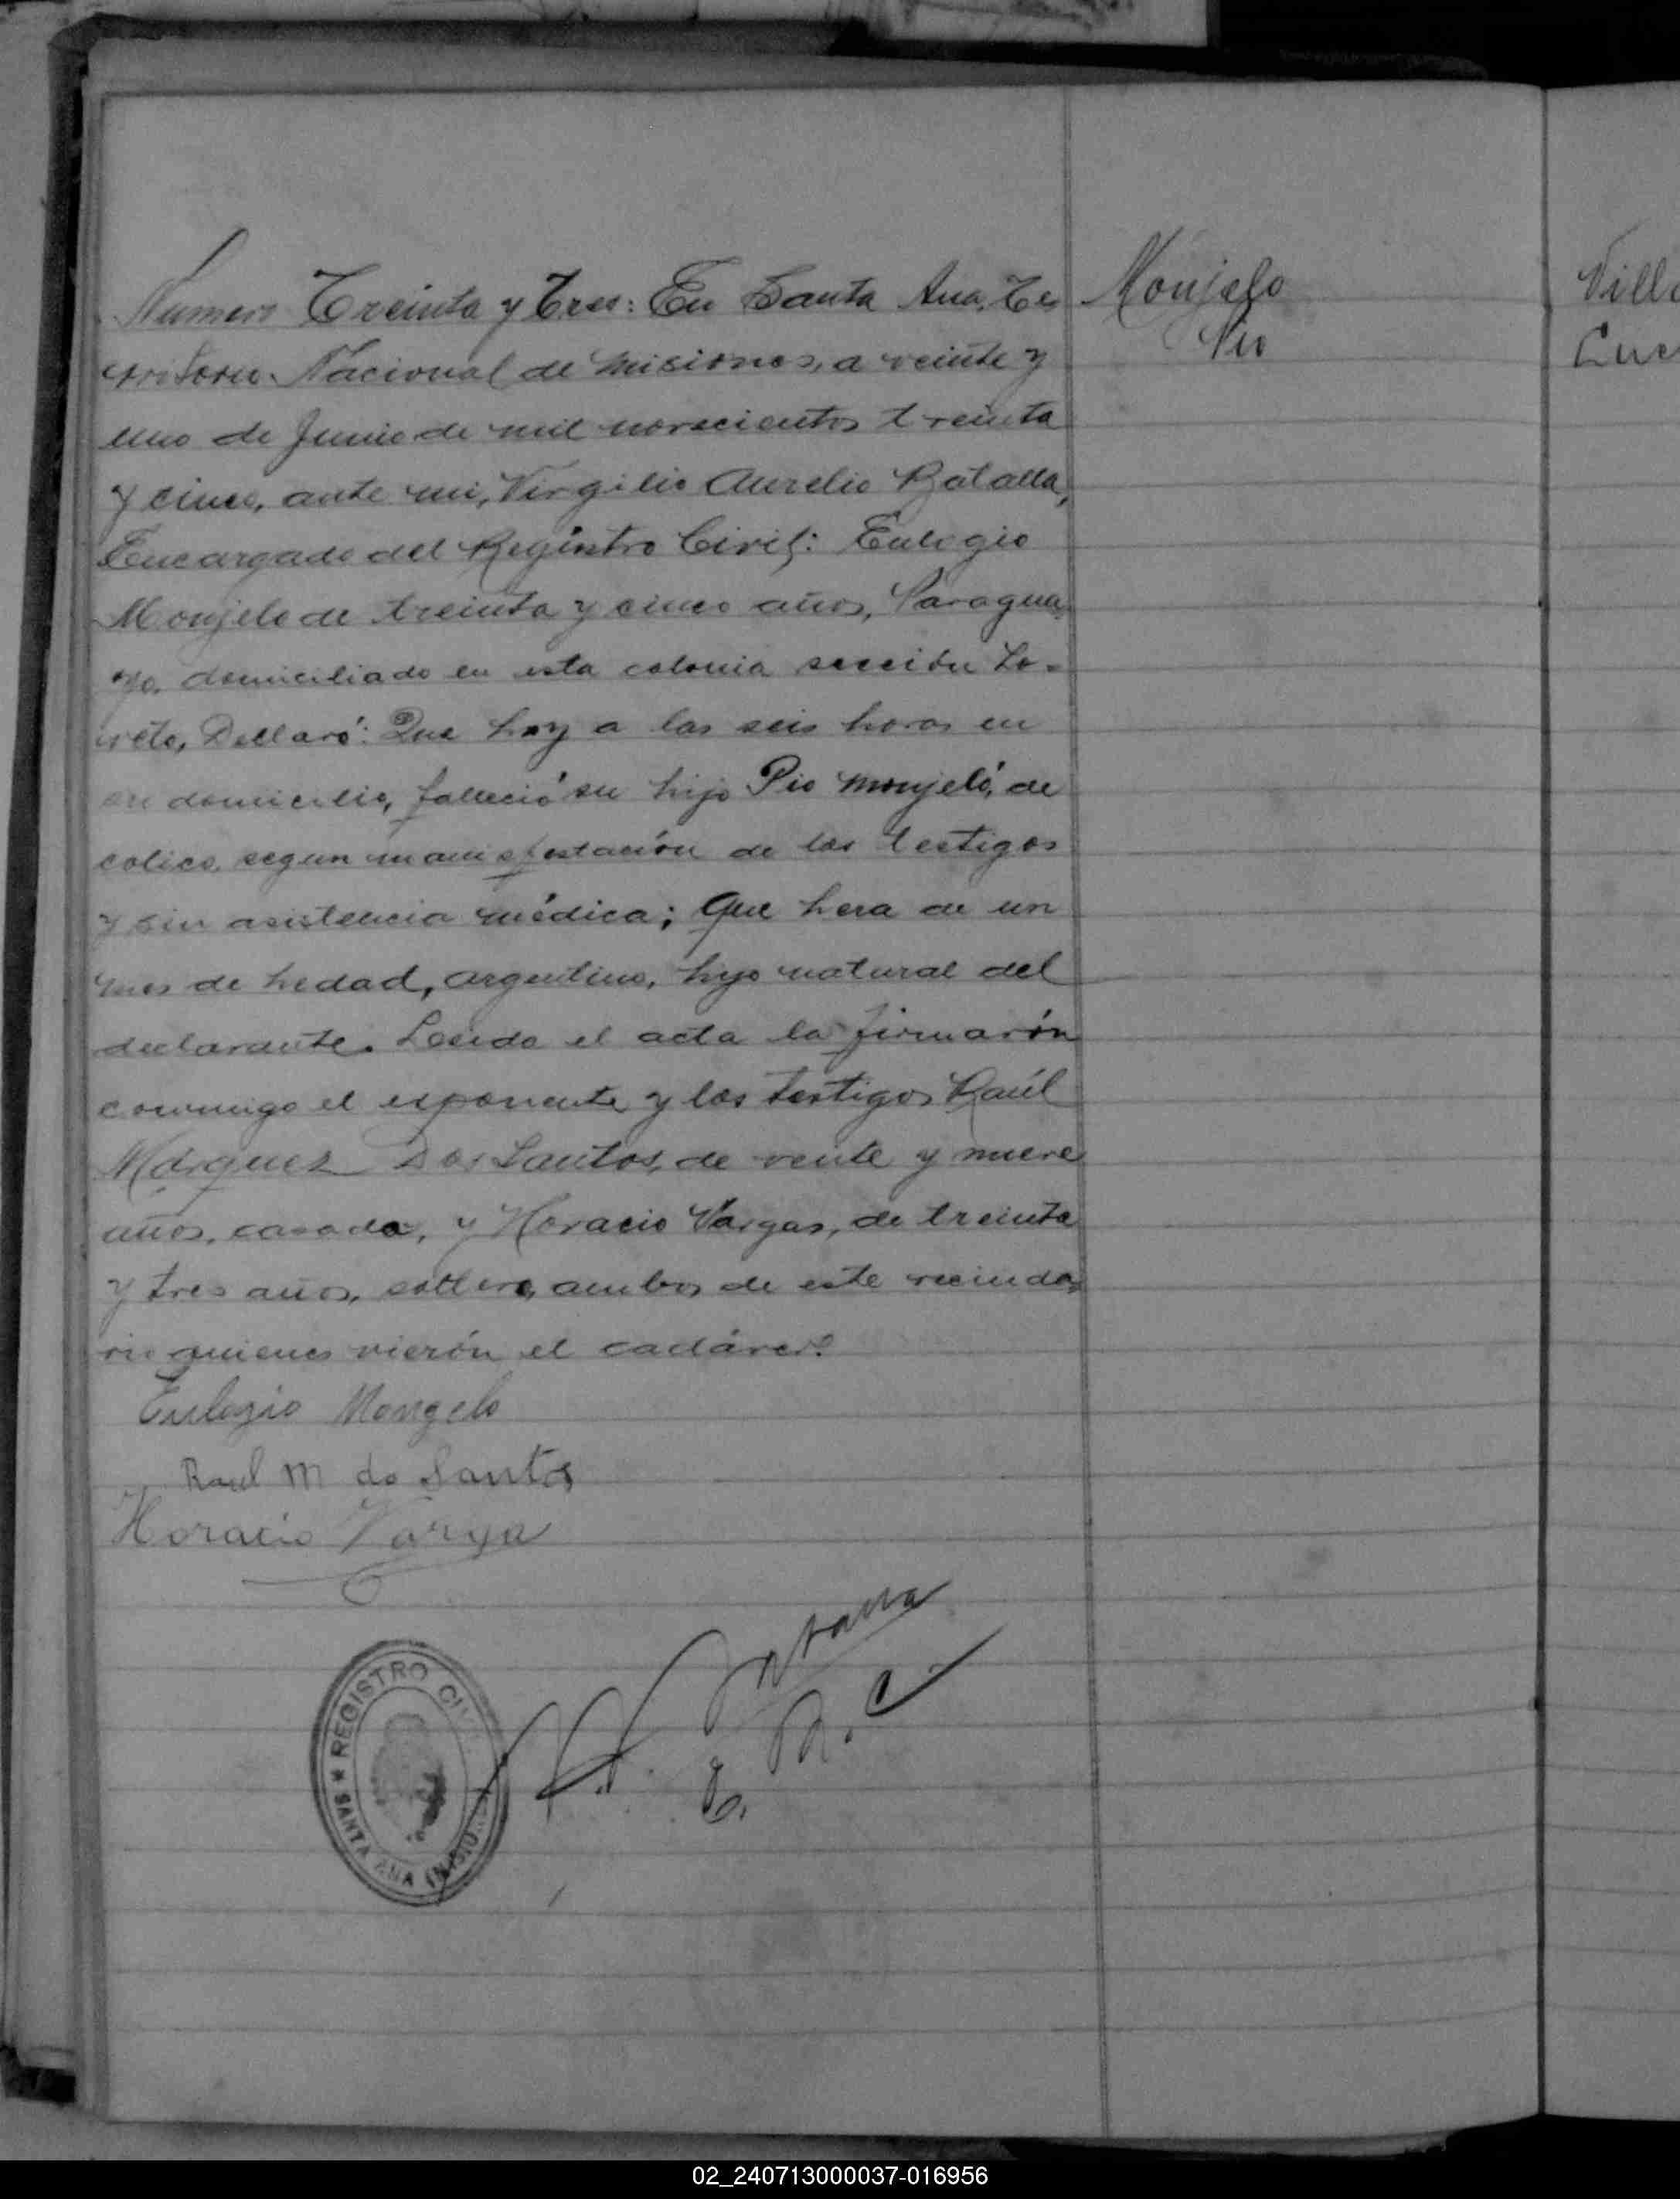 Numero Treinta y Tres: En Santa Ana, Te
rritorio Nacional de Misiones, a veinte y
uno de Junio de mil novecientos treinta
y cinco, ante mi, Virgilio Aurelio Batalla,
Encargado del Registro Civil: Eulogio
Monjelo de treinta y cinco años, Paragua
yo, domiciliado en esta colonia sección Lo-
reto, Declaró: Que hoy a las seis horas en
su domicilio, falleció su hijo Pio Monjeló, de
colico, segun manifestación de los testigos
y sin asistencia médica; Que hera de un
mes de hedad, argentino, hijo natural del
declarante. Leida el acta la firmarón
conmigo el esponente y los testigos Raúl
Márquez Dos Santos, de veinte y nueve
años, casado, y Horacio Vargas, de treinta
y tres años, soltero, ambos de este vecinda
rio quienes vierón el cadáver.
Eulogio Mongelo
Raul M do Santos
Horacio Varga
V. A. Batalla
E. R. C
REGISTRO CIVIL
★ SANTA ANA (MISIONES)
Monjelo
Pio
Vill
Luc
02_240713000037-016956